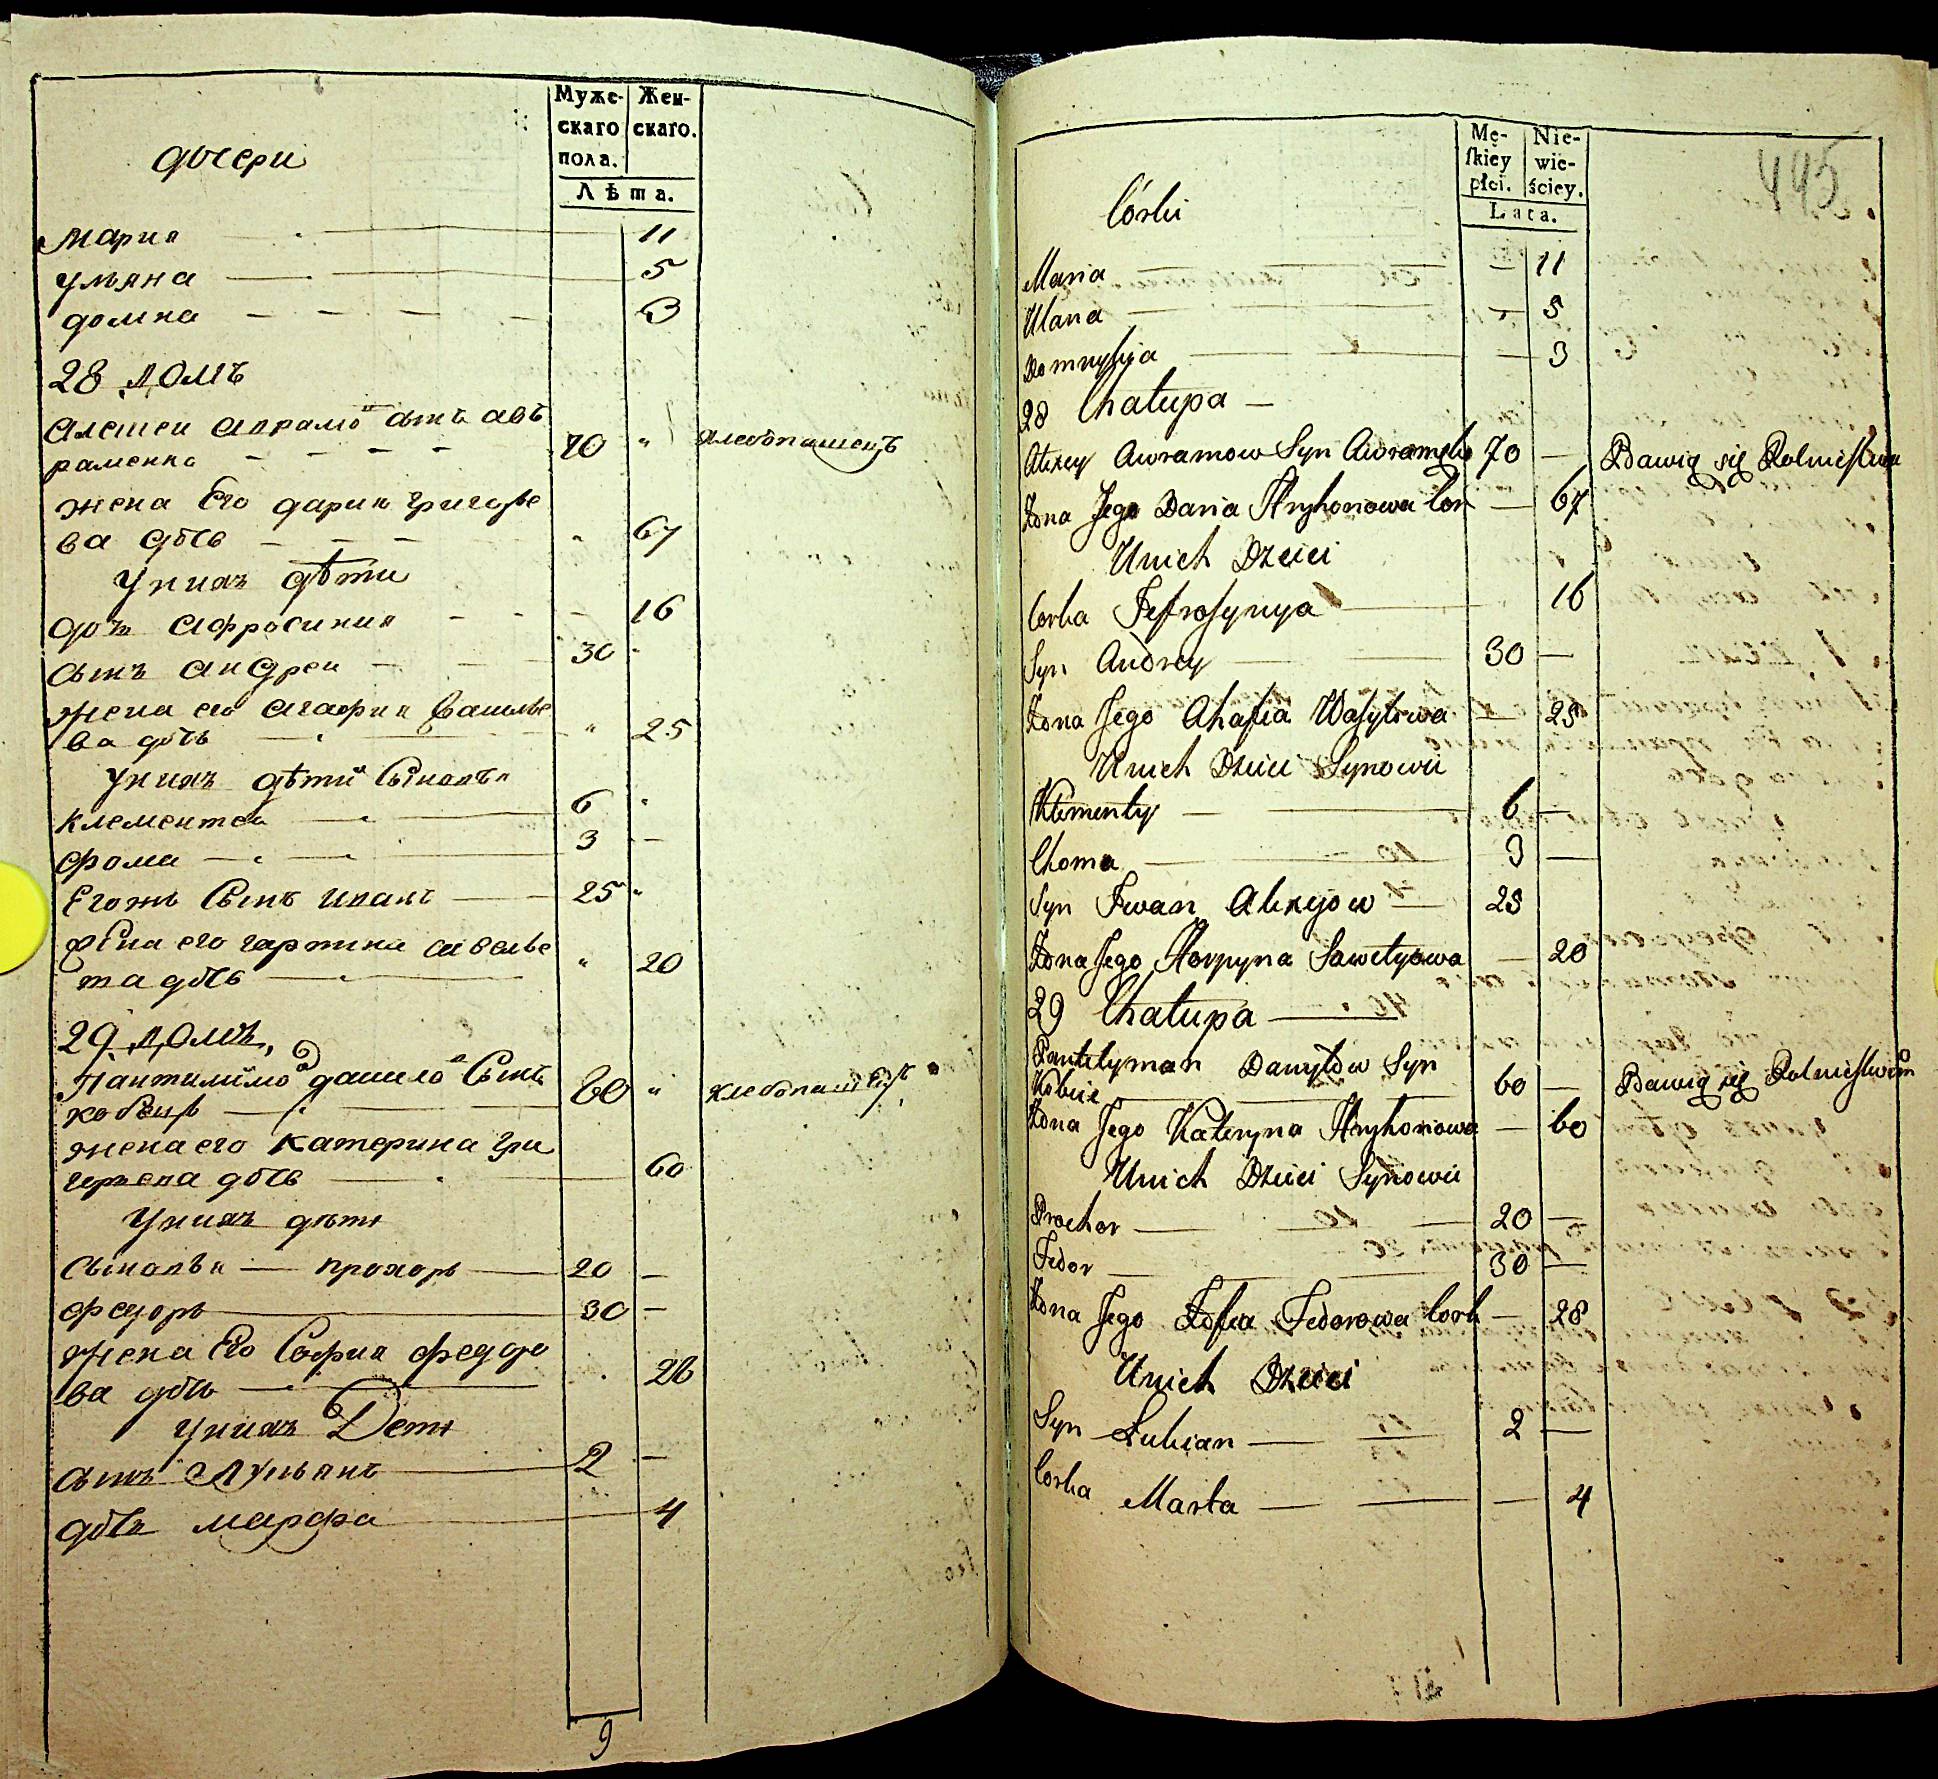 Муже-
скаго
пола.
Жен-
скаго.
Лѣта.
дочери
Мария 11
Ульяна 5
домна 3
28 домъ
Алексеи Аврамо сынъ Авъ
раменко 70 хлебопашецъ
жена Его дария григорье
ва дочь 67
У них дѣти
дочь Афросиния 16
сынъ Андреи 30
жена его агафия василье
ва дочь 25
У них дѣти Сыновья
Клементеи 6
фома 3
Егожъ Сынъ Иванъ 25
жена его гарпина савелье
дочь 20
29 домъ
Пантилимо данило Сынъ
60 хлебопашецъ
жена его Катерина гри
дочь 60
У них дѣти
Сыновья прохоръ 20
федоръ 30
жена Его София федоро
ва дочь 28
У них Дети
сынъ Лукьянъ 2
дочь марфа 4
9
Mę-
ſkiey
płci.
Nie-
wie-
ściey.
Lata.
445
Córki
Maria — 11
Ulana 5
3
28 Chałupa —
Alexey Awramow Syn 70 — Bawią się Rolnictwem
Żona Jego Daria Hryhorowa Cor — 67
Unich Dzieci
Corka Jefrosynya 16
Syn Andrey 30 —
Żona Jego Ahafia Wasylowa — 25
Unich Dzieci Synowie
Klimenty 6 —
Choma 3 —
Syn Iwan Alexyow 25
Żona Jego Horpyna Sawelyowa — 20
29 Chałupa
Pantelyman Danyłow Syn
60 — Bawią się Rolnictwem
Żona Jego Kateryna Hryhorowa — 60
Unich Dzieci Synowie
Prochor 20 —
Fedor 30 —
Żona Jego Zofia Fedorowa Cork — 28
Unich Dzieci
Syn Łukian 2 —
Corka Marta — 4